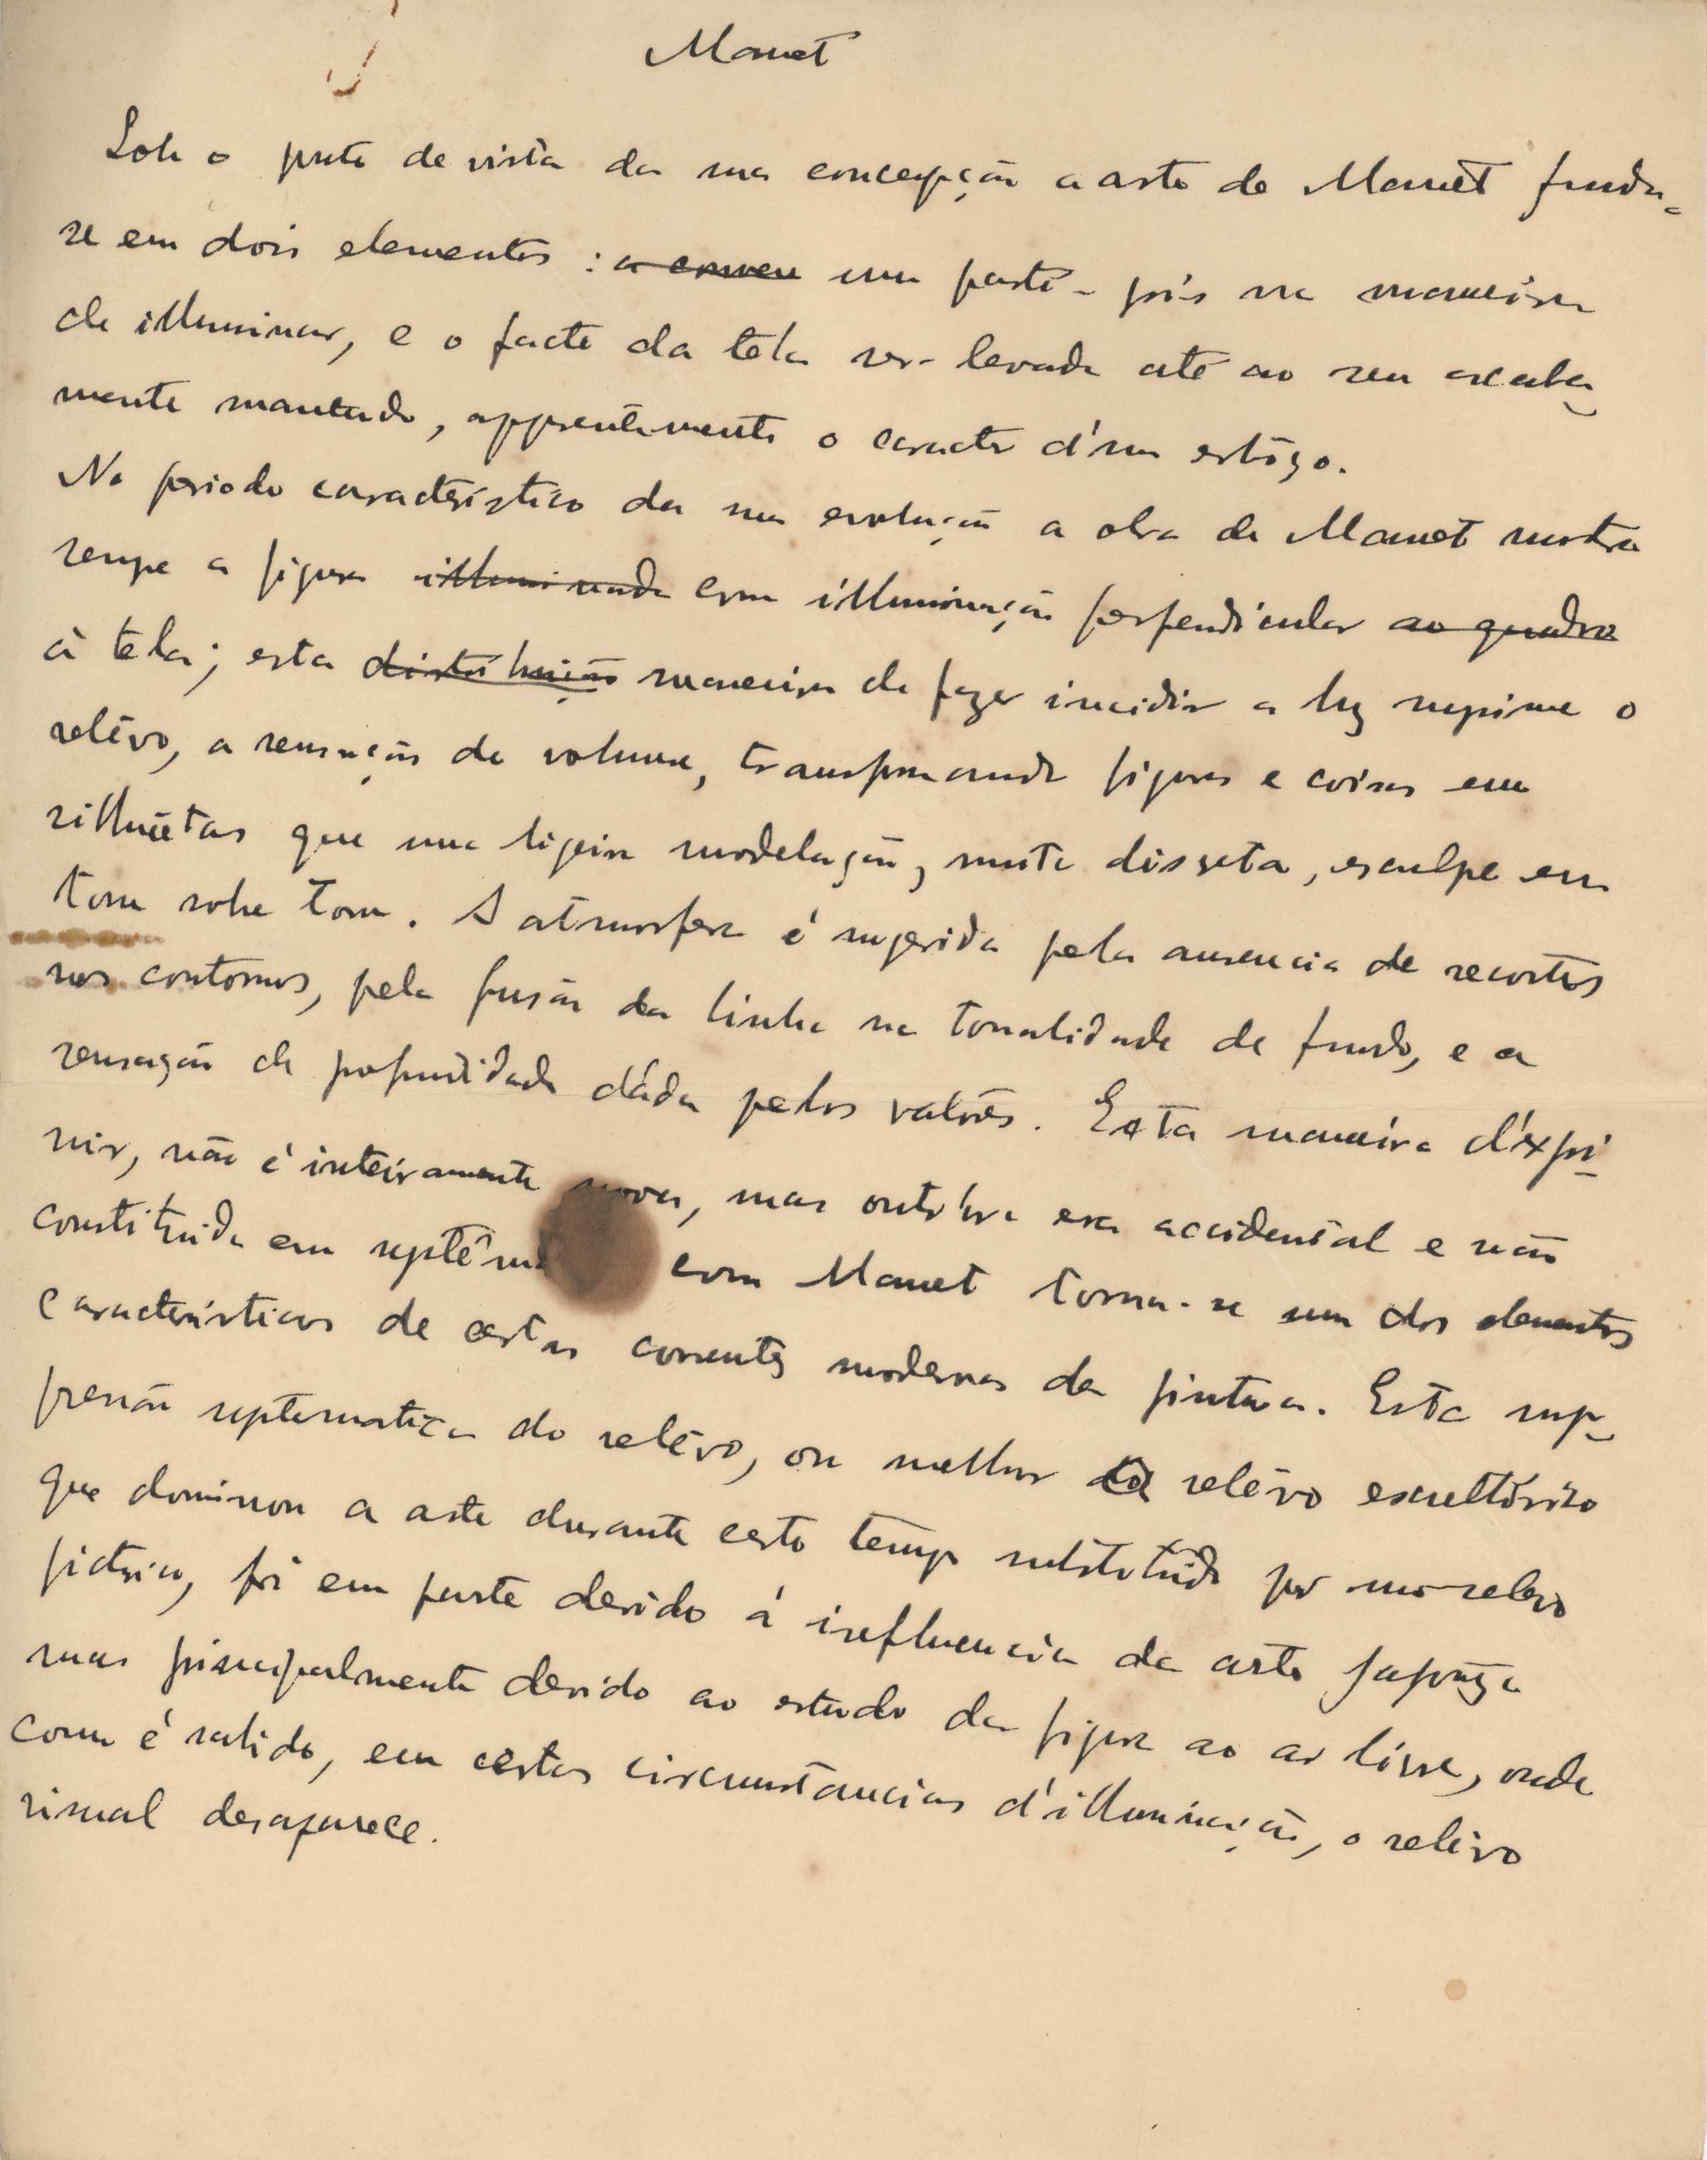 Manet
Sob o ponto de vista da sua concepção a arte de Manet funda-
se em dois elementos : um parti-pris na maneira
de illuminar, e o facto da tela ser levada até ao seu acaba-
mento mantendo, apparentemente o caracter d'um esbôço.
No periodo característico da sua evolução a obra de Manet mostra
sempre a figura illuminada com illuminação perpendicular ao quadro
á tela; esta distribuição maneira de fazer incidir a luz suprime o
relêvo, a sensação de volume, transformando figuras e coisas em
silhuêtas que uma ligeira modelação, muito discreta, esculpe em
tom sobre tom. A atmosfera é sugerida pela ausencia de recortes
nos contornos, pela fusão da linha na tonalidade de fundo, e a
sensação de profundidade dáda pelos valôres. Esta maneira d'expri-
mir, não é inteiramente nova, mas outrora era accidental e não
constituida em systêma com Manet torna-se um dos elementos
característicos de certas correntes modernas da pintura. Esta sup-
pressão systematica do relêvo, ou melhor do relêvo escultórico
que dominou a arte durante certo tempo substituido por um relevo
pictórico, foi em parte devido á influencia da arte japonêza
mas principalmente devido ao estudo da figura ao ar livre, onde
como é sabido, em certas circumstancias d'illuminação, o relêvo
visual desaparece.